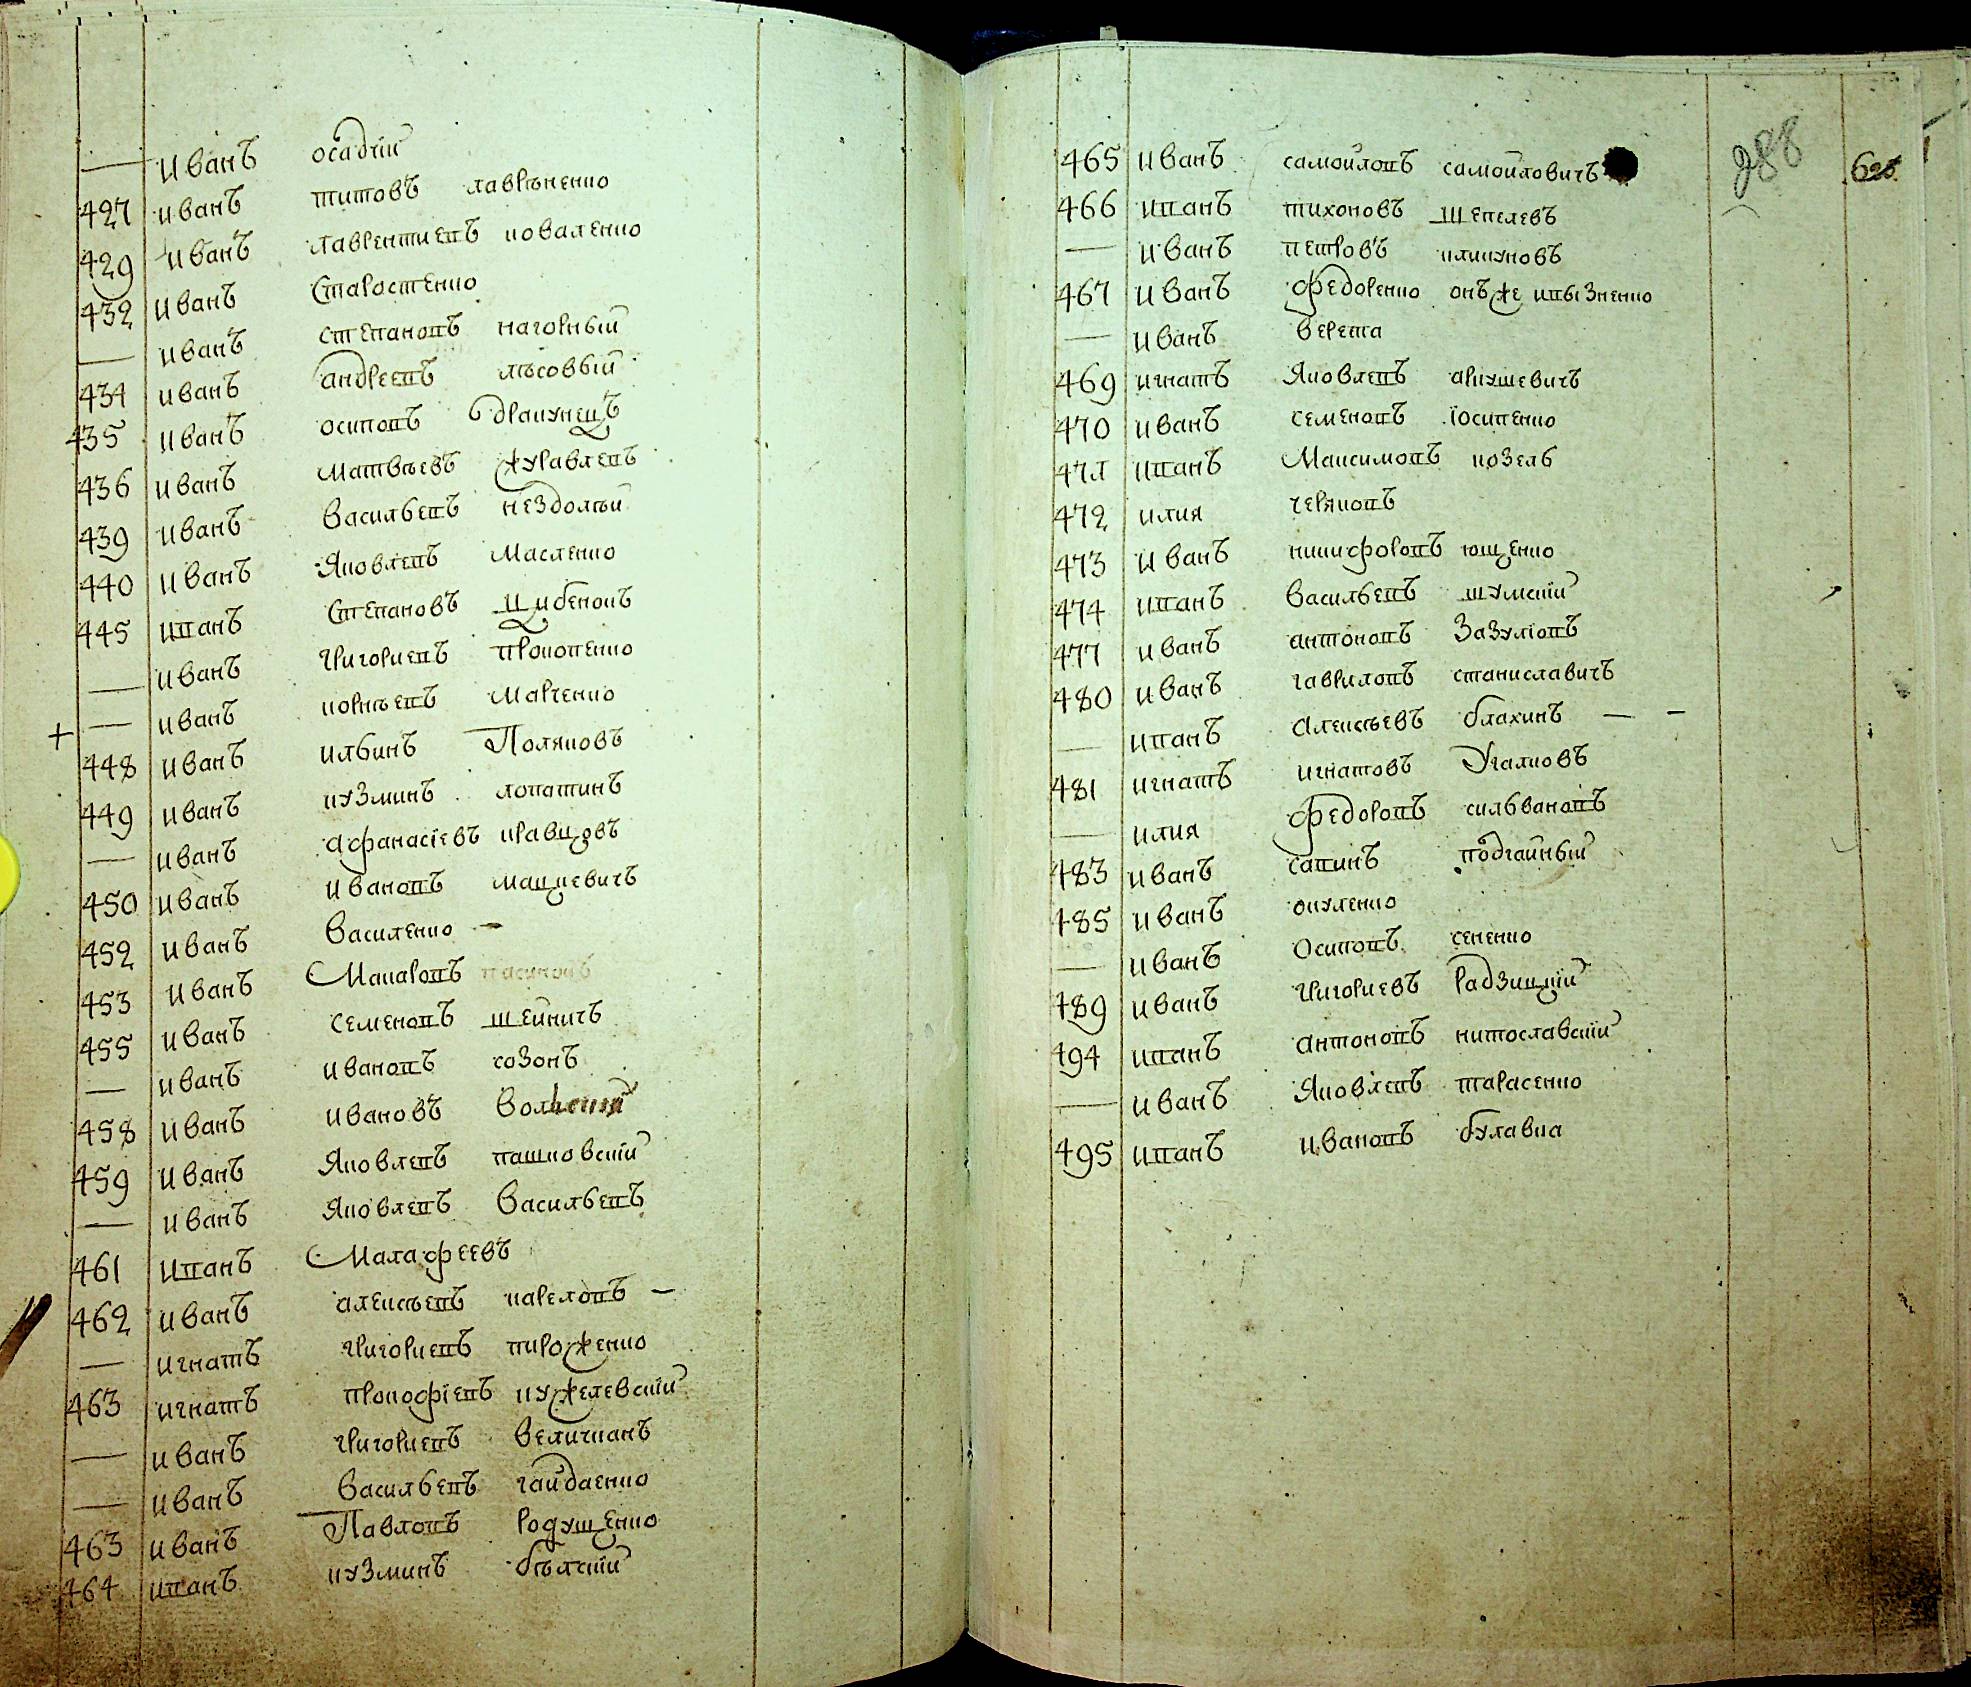 — иванъ осадчій
427 иванъ титовъ лаврѣненко
429 иванъ лаврентиевъ коваленко
432 иванъ Старостенко
— иванъ степановъ нагорный
434 иванъ андреевъ лѣсовый
435 иванъ осиповъ дракунецъ
436 иванъ матвѣевъ журавлевъ
439 иванъ васильевъ нездолѣй
440 иванъ Яковлевъ масленко
445 иванъ Степановъ цибенокъ
— иванъ григориевъ прокопенко
— иванъ корнѣевъ марченко
+ 448 иванъ ильинъ Поляковъ
449 иванъ кузминъ лопатинъ
— иванъ афанасіевъ кравцовъ
450 иванъ ивановъ мацкевичъ
452 иванъ василенко —
453 иванъ Макаровъ
455 иванъ семеновъ шейничъ
— иванъ ивановъ созонъ
458 иванъ ивановъ
459 иванъ Яковлевъ пашковскій
— иванъ Яковлевъ васильевъ
461 иванъ Малафеевъ
462 иванъ алексѣевъ кареловъ —
— игнатъ григориевъ пироженко
463 игнатъ прокофіевъ кужелевскій
— иванъ григориевъ величканъ
— иванъ васильевъ гайдаенко
463 иванъ Павловъ родущенко
464 иванъ кузминъ бѣлскій
288
628
465 иванъ самойловъ самойловичъ
466 иванъ тихоновъ шепелевъ
— иванъ петровъ кликуновъ
467 иванъ федоренко онъ же кизненко
— иванъ верета
469 игнатъ Яковлевъ аркушевичъ
470 иванъ семеновъ іосипенко
471 иванъ Максимовъ козелъ
472 илия черяковъ
473 иванъ никифоровъ ющенко
474 иванъ васильевъ шумскій
477 иванъ антоновъ зазуліовъ
480 иванъ гавриловъ станиславичъ
— иванъ алексѣевъ блахинъ — —
481 игнатъ игнатовъ Угалковъ
— илия федоровъ сильвановъ
483 иванъ савинъ подгайный
485 иванъ окуленко
— иванъ Осиповъ сененко
489 иванъ григориевъ радзицкій
494 иванъ антоновъ нитославскій
— иванъ Яковлевъ тарасенко
495 иванъ ивановъ булавка